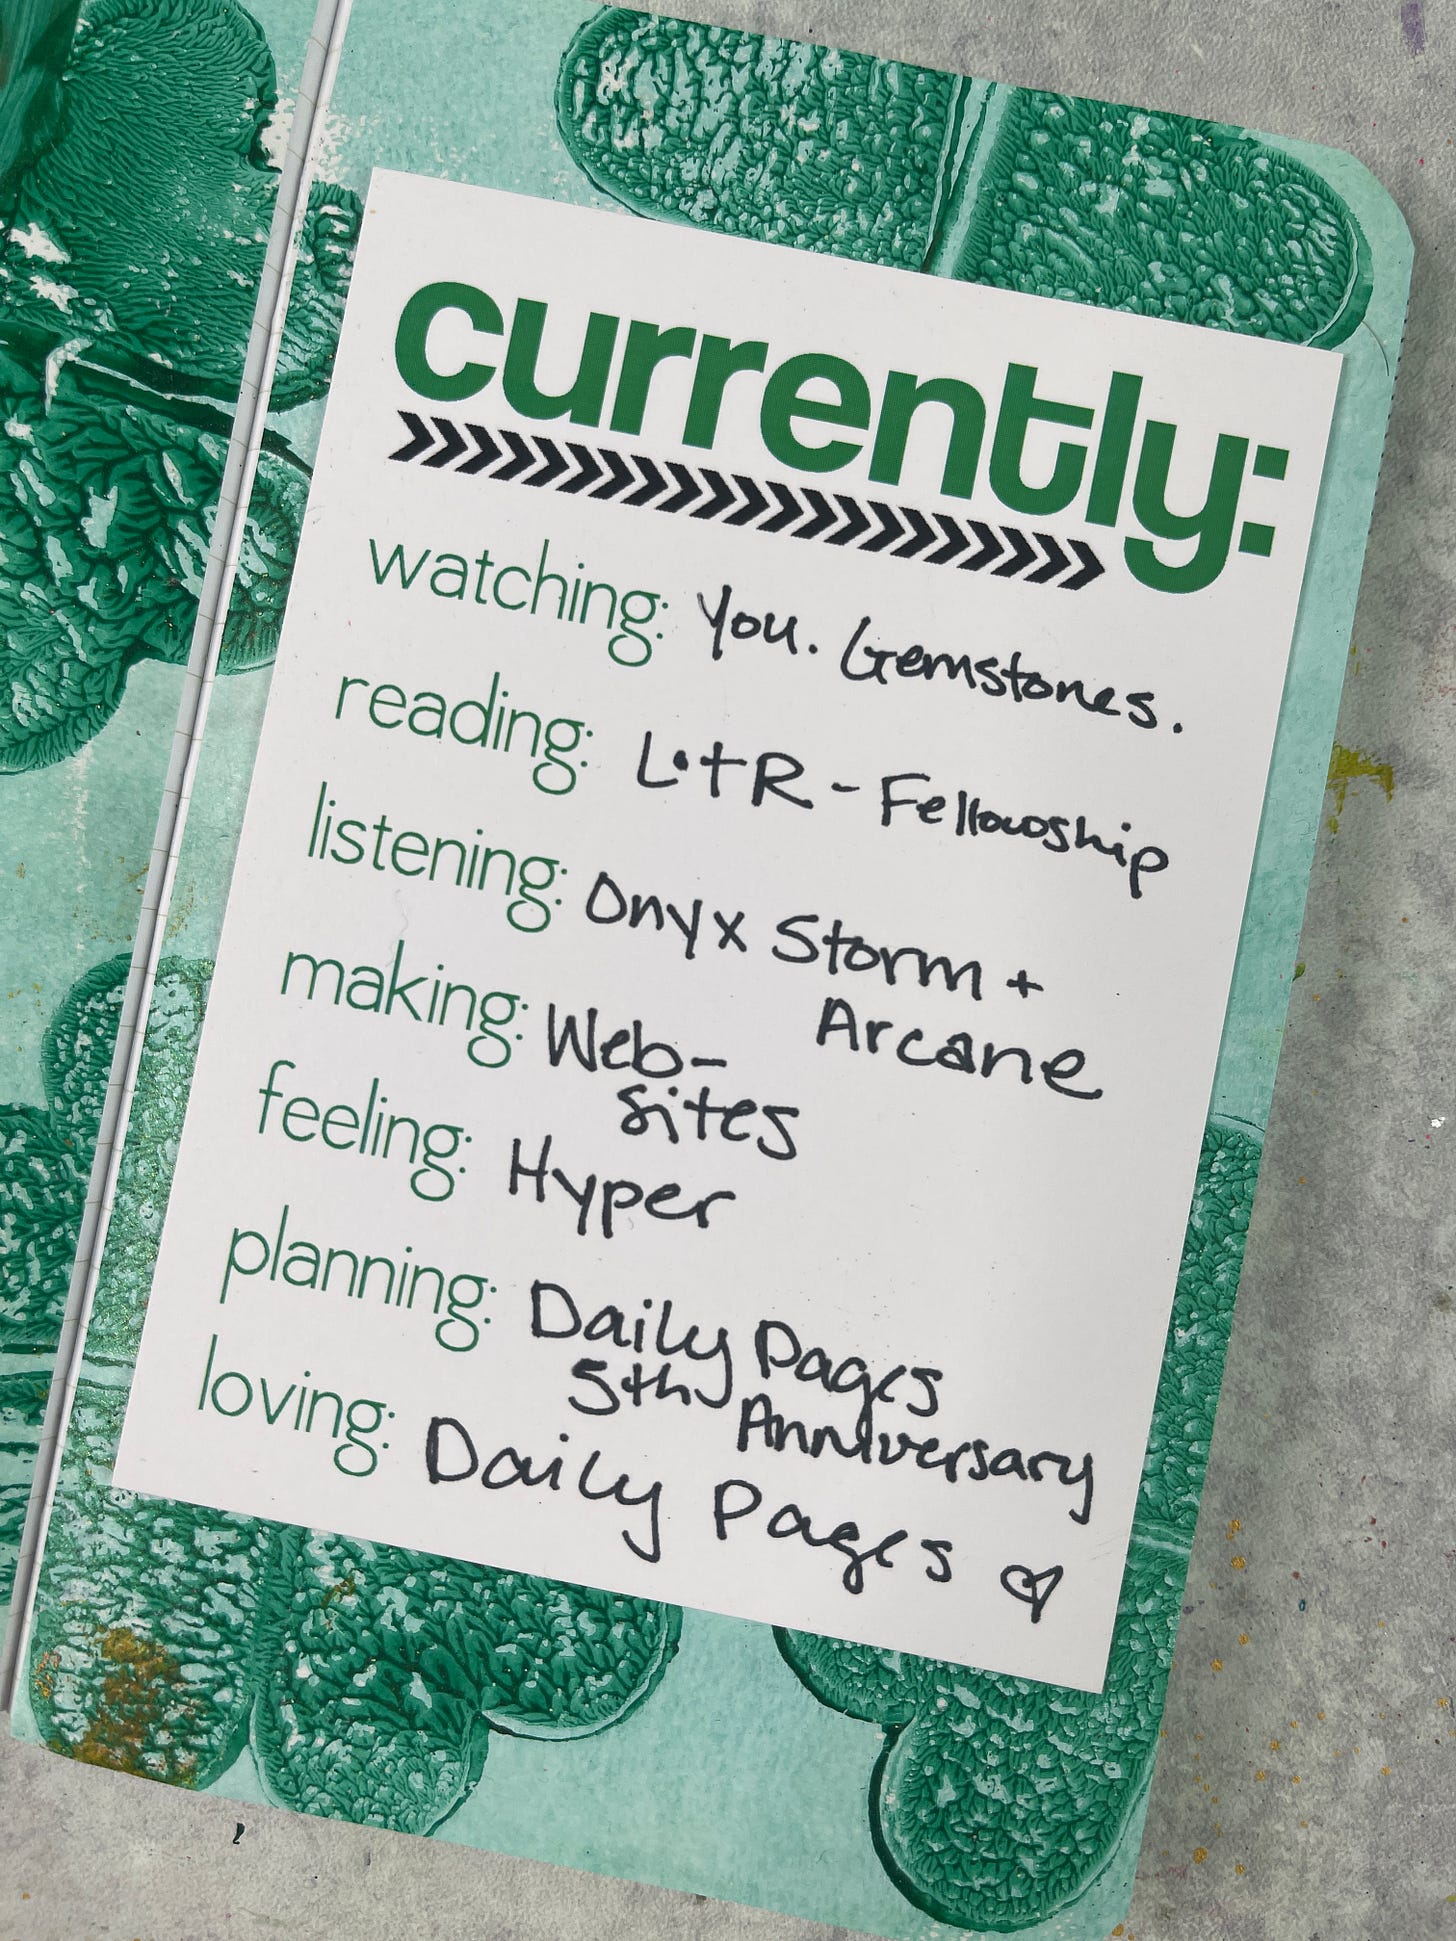 currently:
watching: You. Gemstones.
reading: LotR - Fellowship
listening: Onyx Storm +
Arcane
making: Web-
sites
feeling: Hyper
planning: Daily Pages
5th Anniversary
loving: Daily Pages ♡